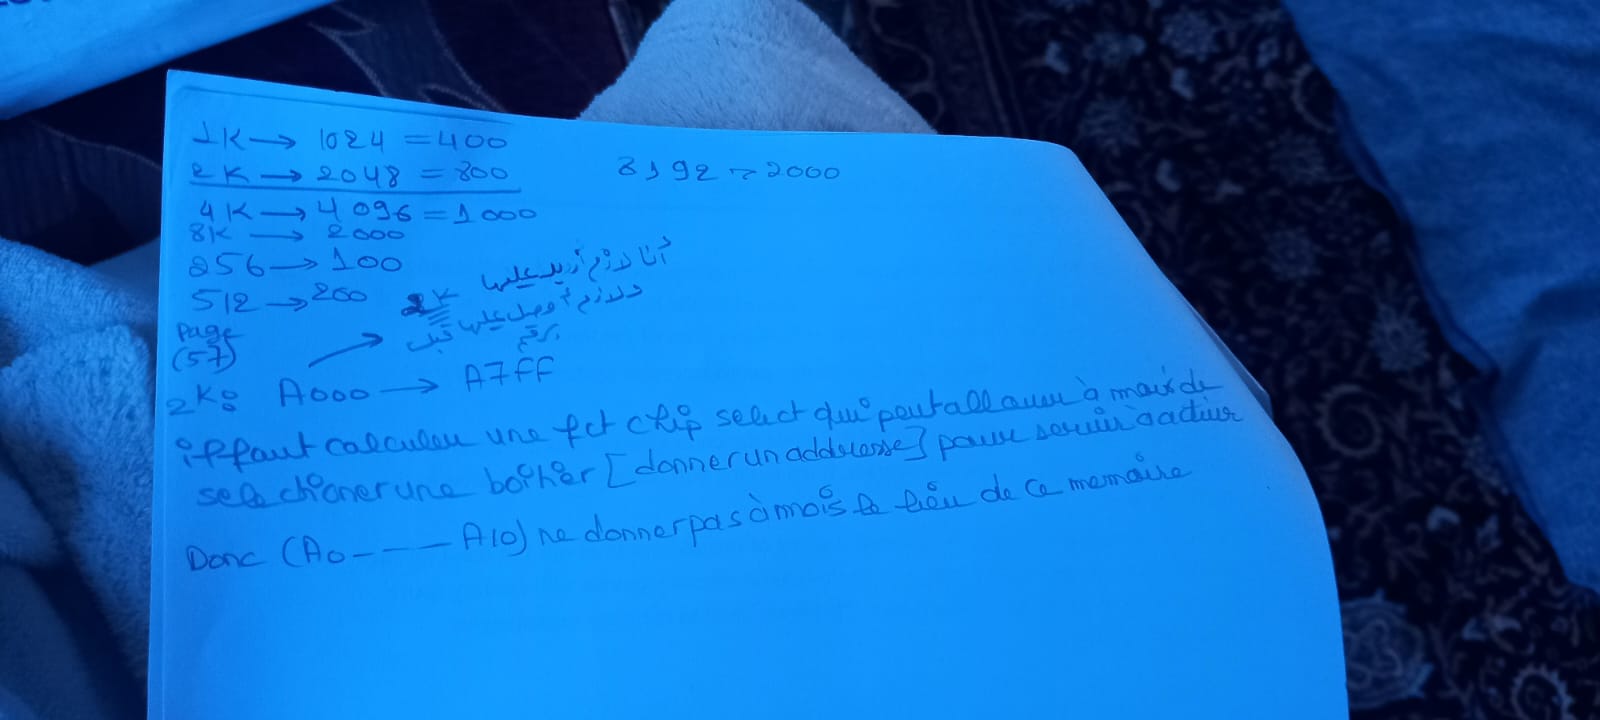 1K → 1024 = 400
2K → 2048 = 800
8192 → 2000
4K → 4096 = 1000
8K → 2000
256 → 100
512 → 200
2K أنا لازم أزيد عليها
ولازم أوصل عليها قبل
برقم
Page
(57)
2K: A000 → A7FF
il faut calculer une fct chip select qui peut allouer à mois de
selectioner une boîtier [donner un addresse] pour servir à activer
Donc (A0 --- A10) ne donner pas à mois le lieu de ce memoire